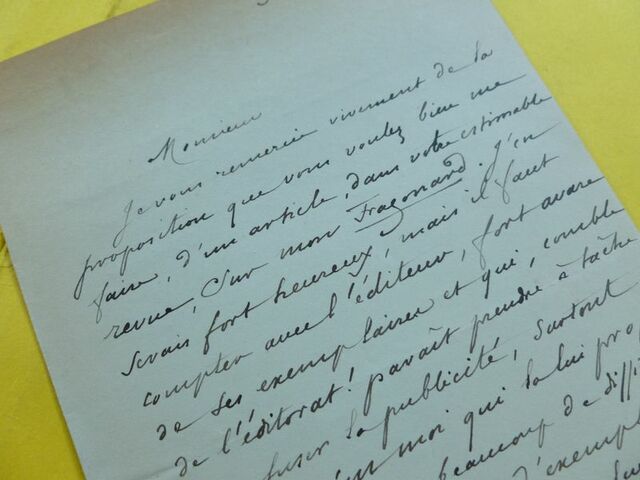 Monsieur
Je vous remercie vivement de la
proposition que vous voulez bien me
faire, d'un article, dans votre estimable
revue, sur mon Fragonard. J'en
serais fort heureux, mais il faut
compter avec l'éditeur, fort avare
de ses exemplaires et qui, comble
de l'éditorat! paraît prendre à tâche
fuser la publicité, surtout
moi qui la lui pro
beaucoup de diffi
d'exempl